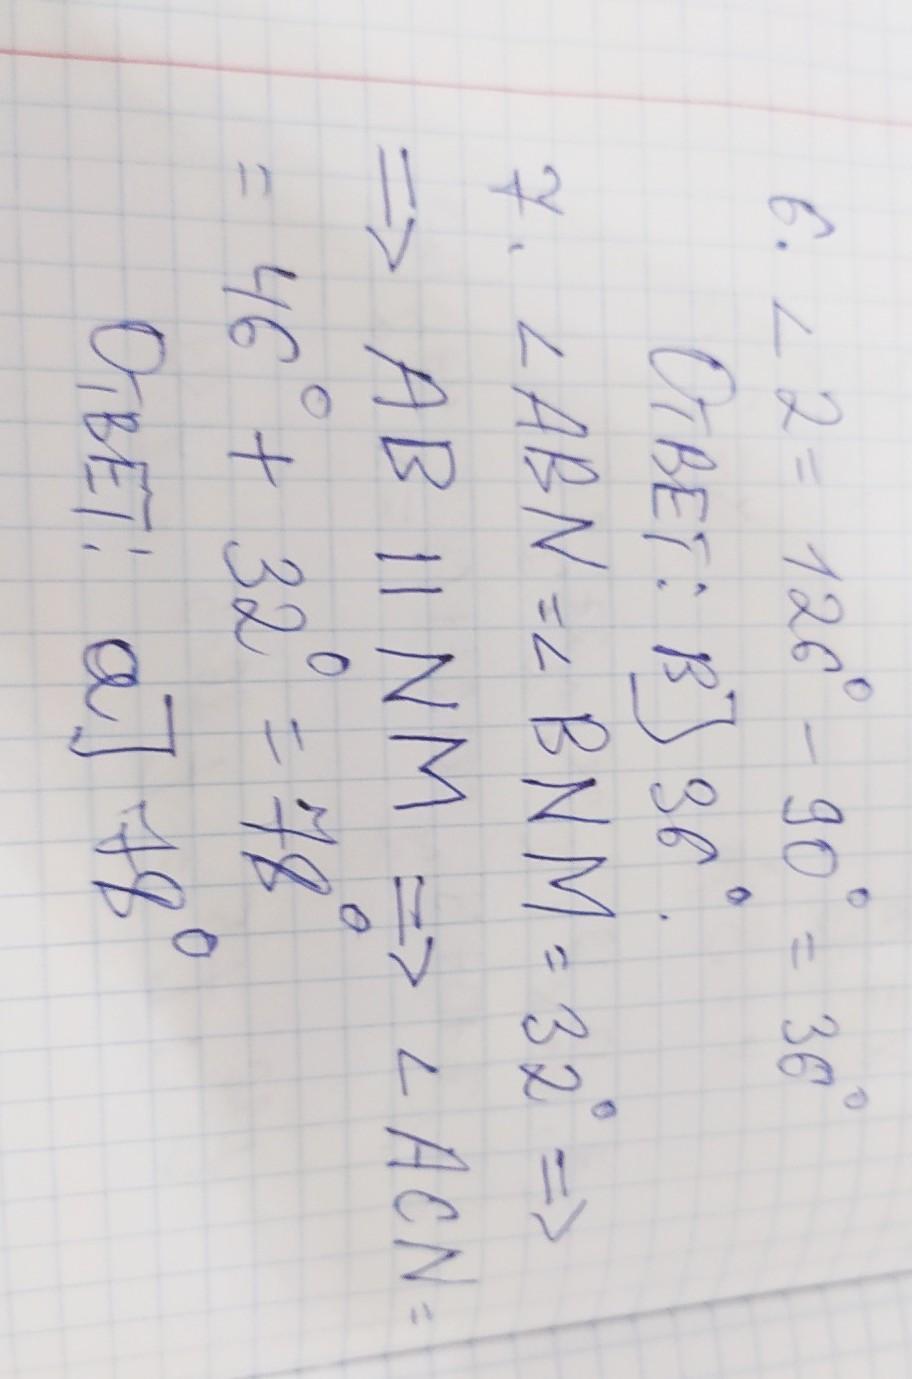 6. ∠2 = 126° - 90° = 36°
Ответ: в] 36°.
7. ∠ABN = ∠BNM = 32° =>
=> AB || NM => ∠ACN =
= 46° + 32° = 78°
Ответ: а] 78°